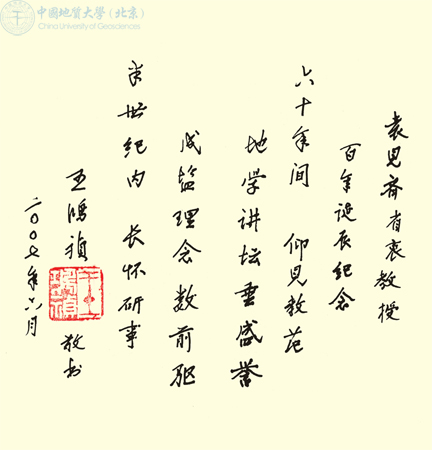 中國地質大學(北京)
China University of Geosciences
袁见齐省衷教授
百年诞辰纪念
六十年间 仰见教范
地学讲坛垂盛誉
成盐理念数前驱
半世纪内 长怀研事
王鸿祯 敬书
二〇〇七年六月